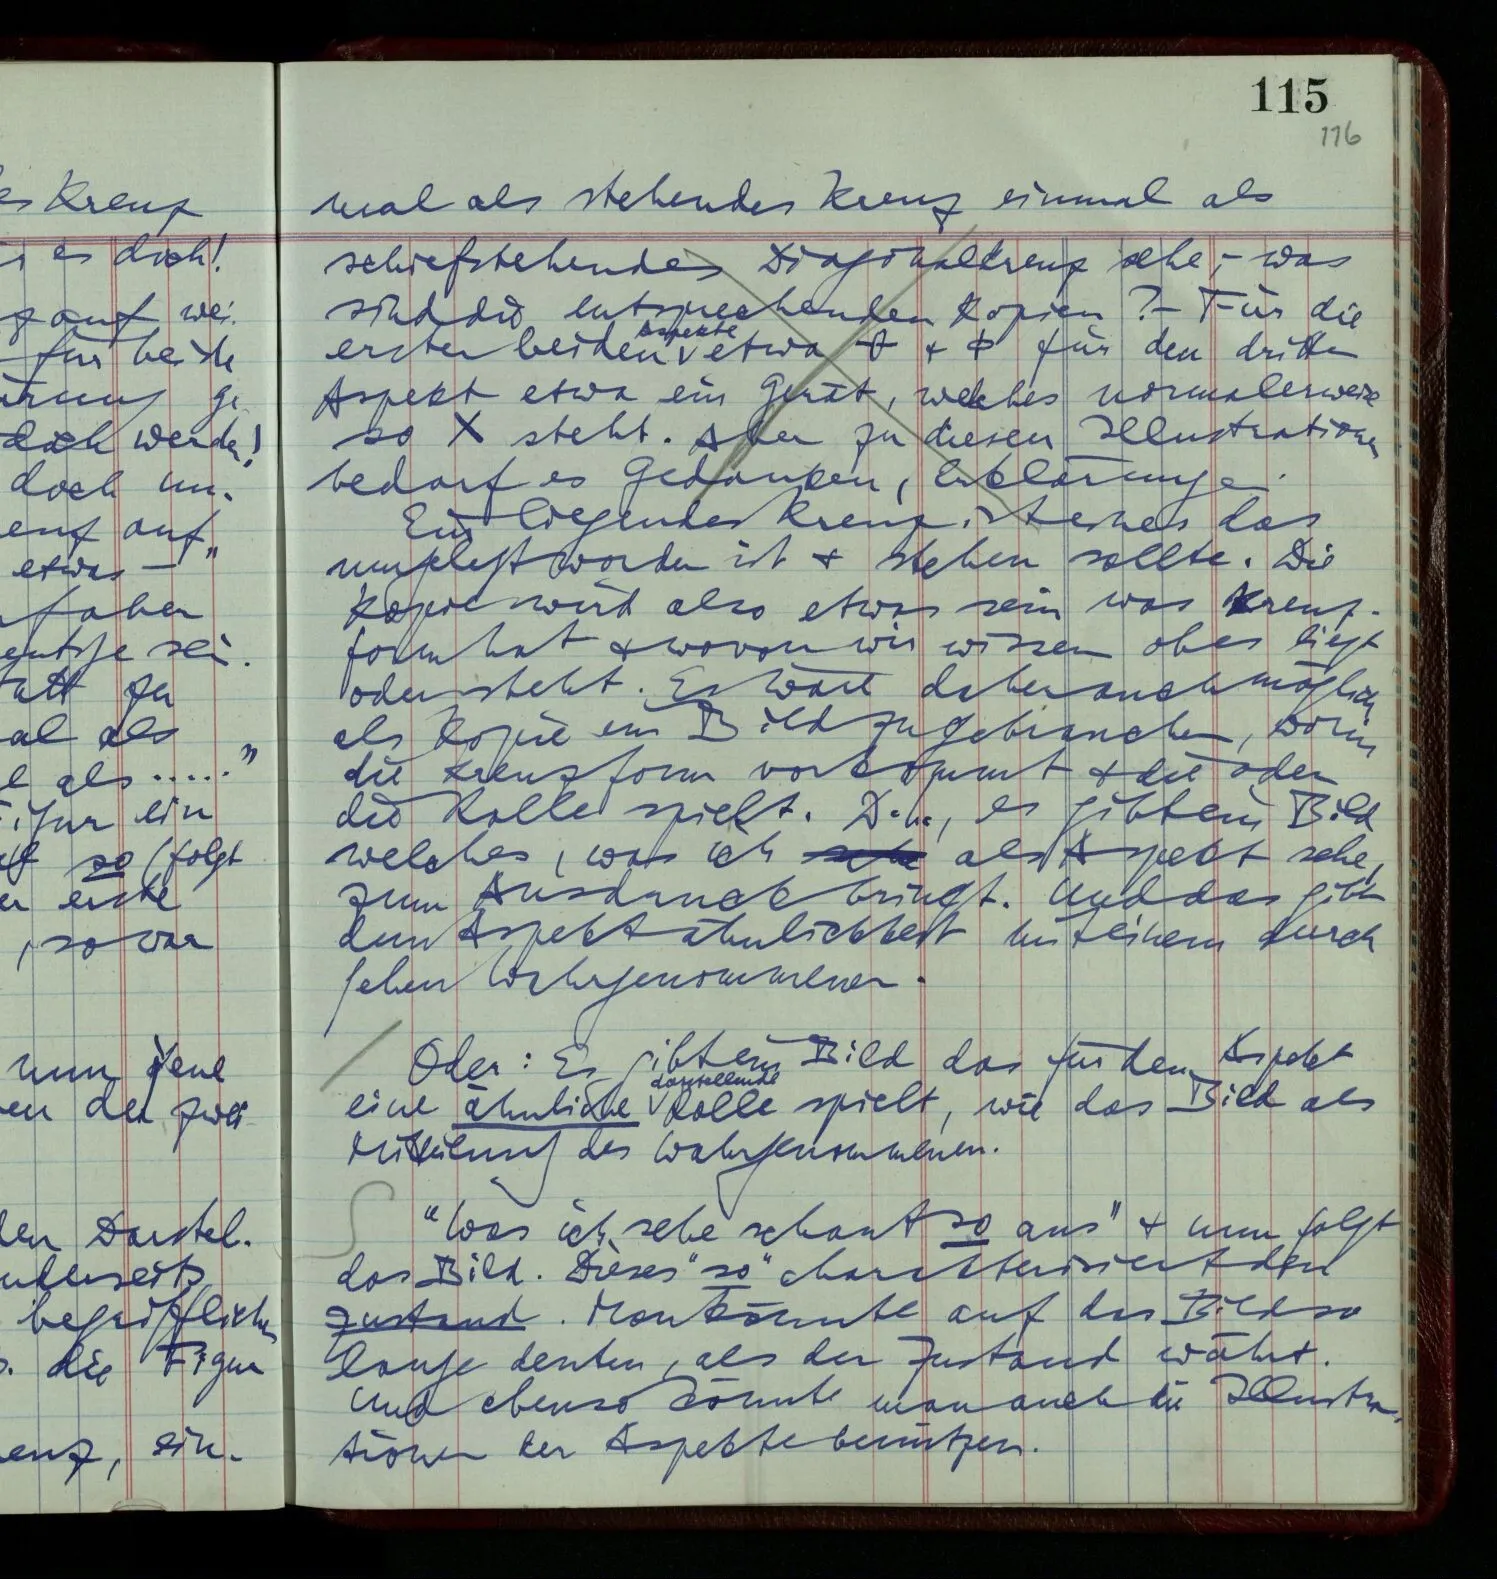 es Kreuz
es doch!
auf wei.
für beide
ge
doch werden!
doch un.
auf"
etwas —
aber
sei.
statt zu
mal als
als ....."
Figur ein
so (folgt
er erste
, so war
nun jene
den der zwei
den Darstel.
anderseits
begrifflichen
die Figur
Kreuz, ein.
115
116
mal als stehendes Kreuz einmal als
schiefstehendes Diagonalkreuz sehe, – was
sind die entsprechenden Kopien? – Für die
ersten beiden Aspekte etwa + für den dritten
Aspekt etwa ein Gerät, welches normalerweise
so X steht. Aber zu diesen Illustrationen
bedarf es Gedanken, Erklärungen.
Ein liegendes Kreuz ist eines das
umgelegt worden ist + stehen sollte. Die
Kopie wird also etwas sein was Kreuz-
form hat + wovon wir wissen ob es liegt
oder steht. Es wäre daher auch möglich
als Kopie ein Bild zu gebrauchen, worin
die Kreuzform vorkommt + die oder
die Rolle spielt. D.h., es gibt ein Bild
welches, was ich sehe als Aspekt sehe,
zum Ausdruck bringt. Und das gibt
dem Aspekt Ähnlichkeit mit einem durch
Sehen Wahrgenommenen.
Oder: Es gibt ein Bild das für den Aspekt
eine ähnliche darstellende Rolle spielt, wie das Bild als
Mitteilung des Wahrgenommenen.
"Was ich sehe schaut so aus" + nun folgt
das Bild. Dieses "so" charakterisiert den
Zustand. Man könnte auf das Bild so
lange deuten, als der Zustand währt.
Und ebenso könnte man auch die Illustra-
tionen der Aspekte benützen.